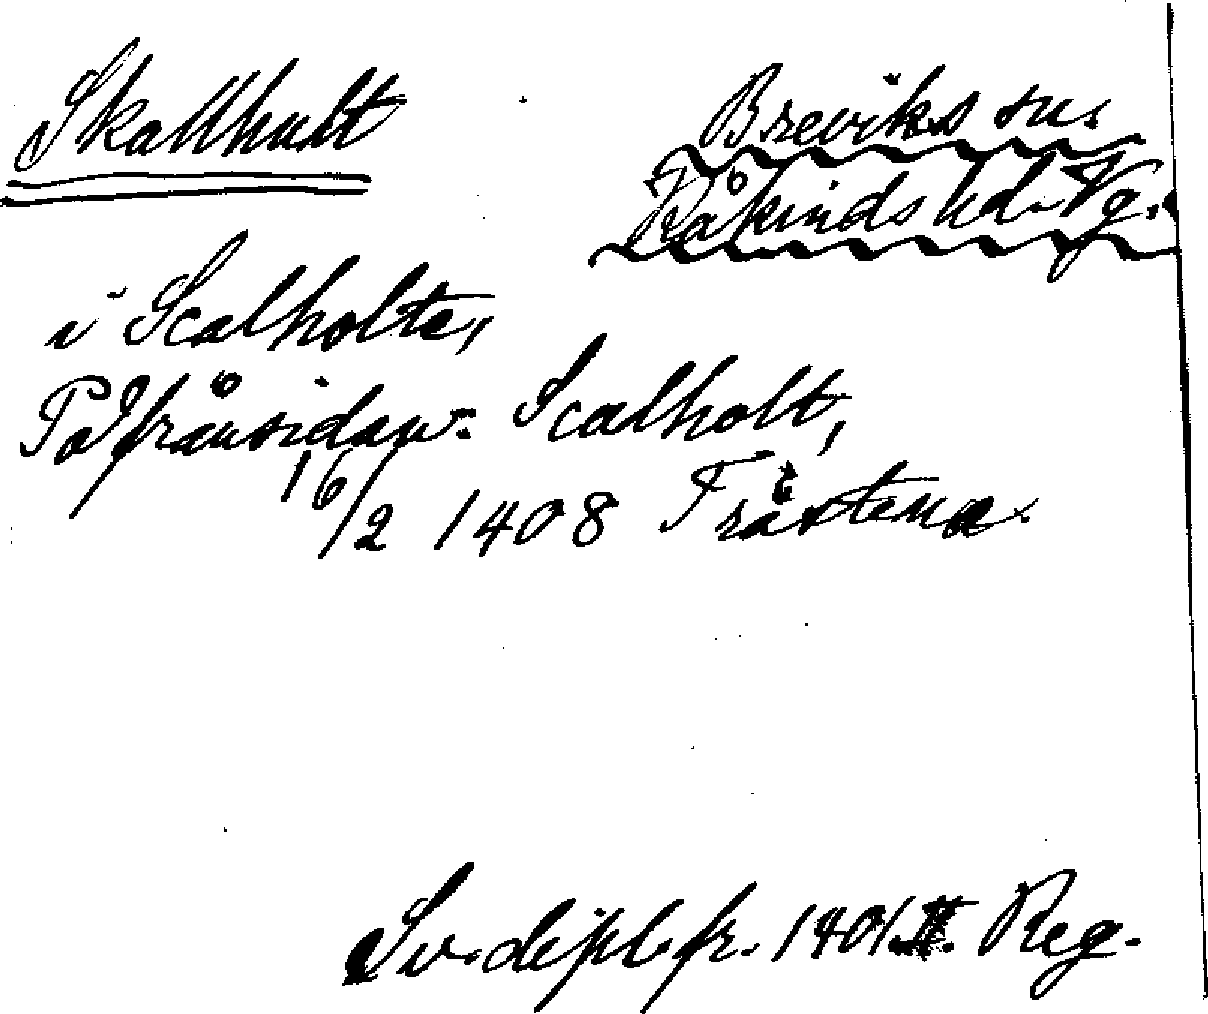 Skallhult
Breviks sn.
Kåkinds hd. Vg.
i Scalholte,
På frånsidan: Scalholt,
16/2 1408 Fråstena.
Sv. dipl. fr. 1401 II. Reg.